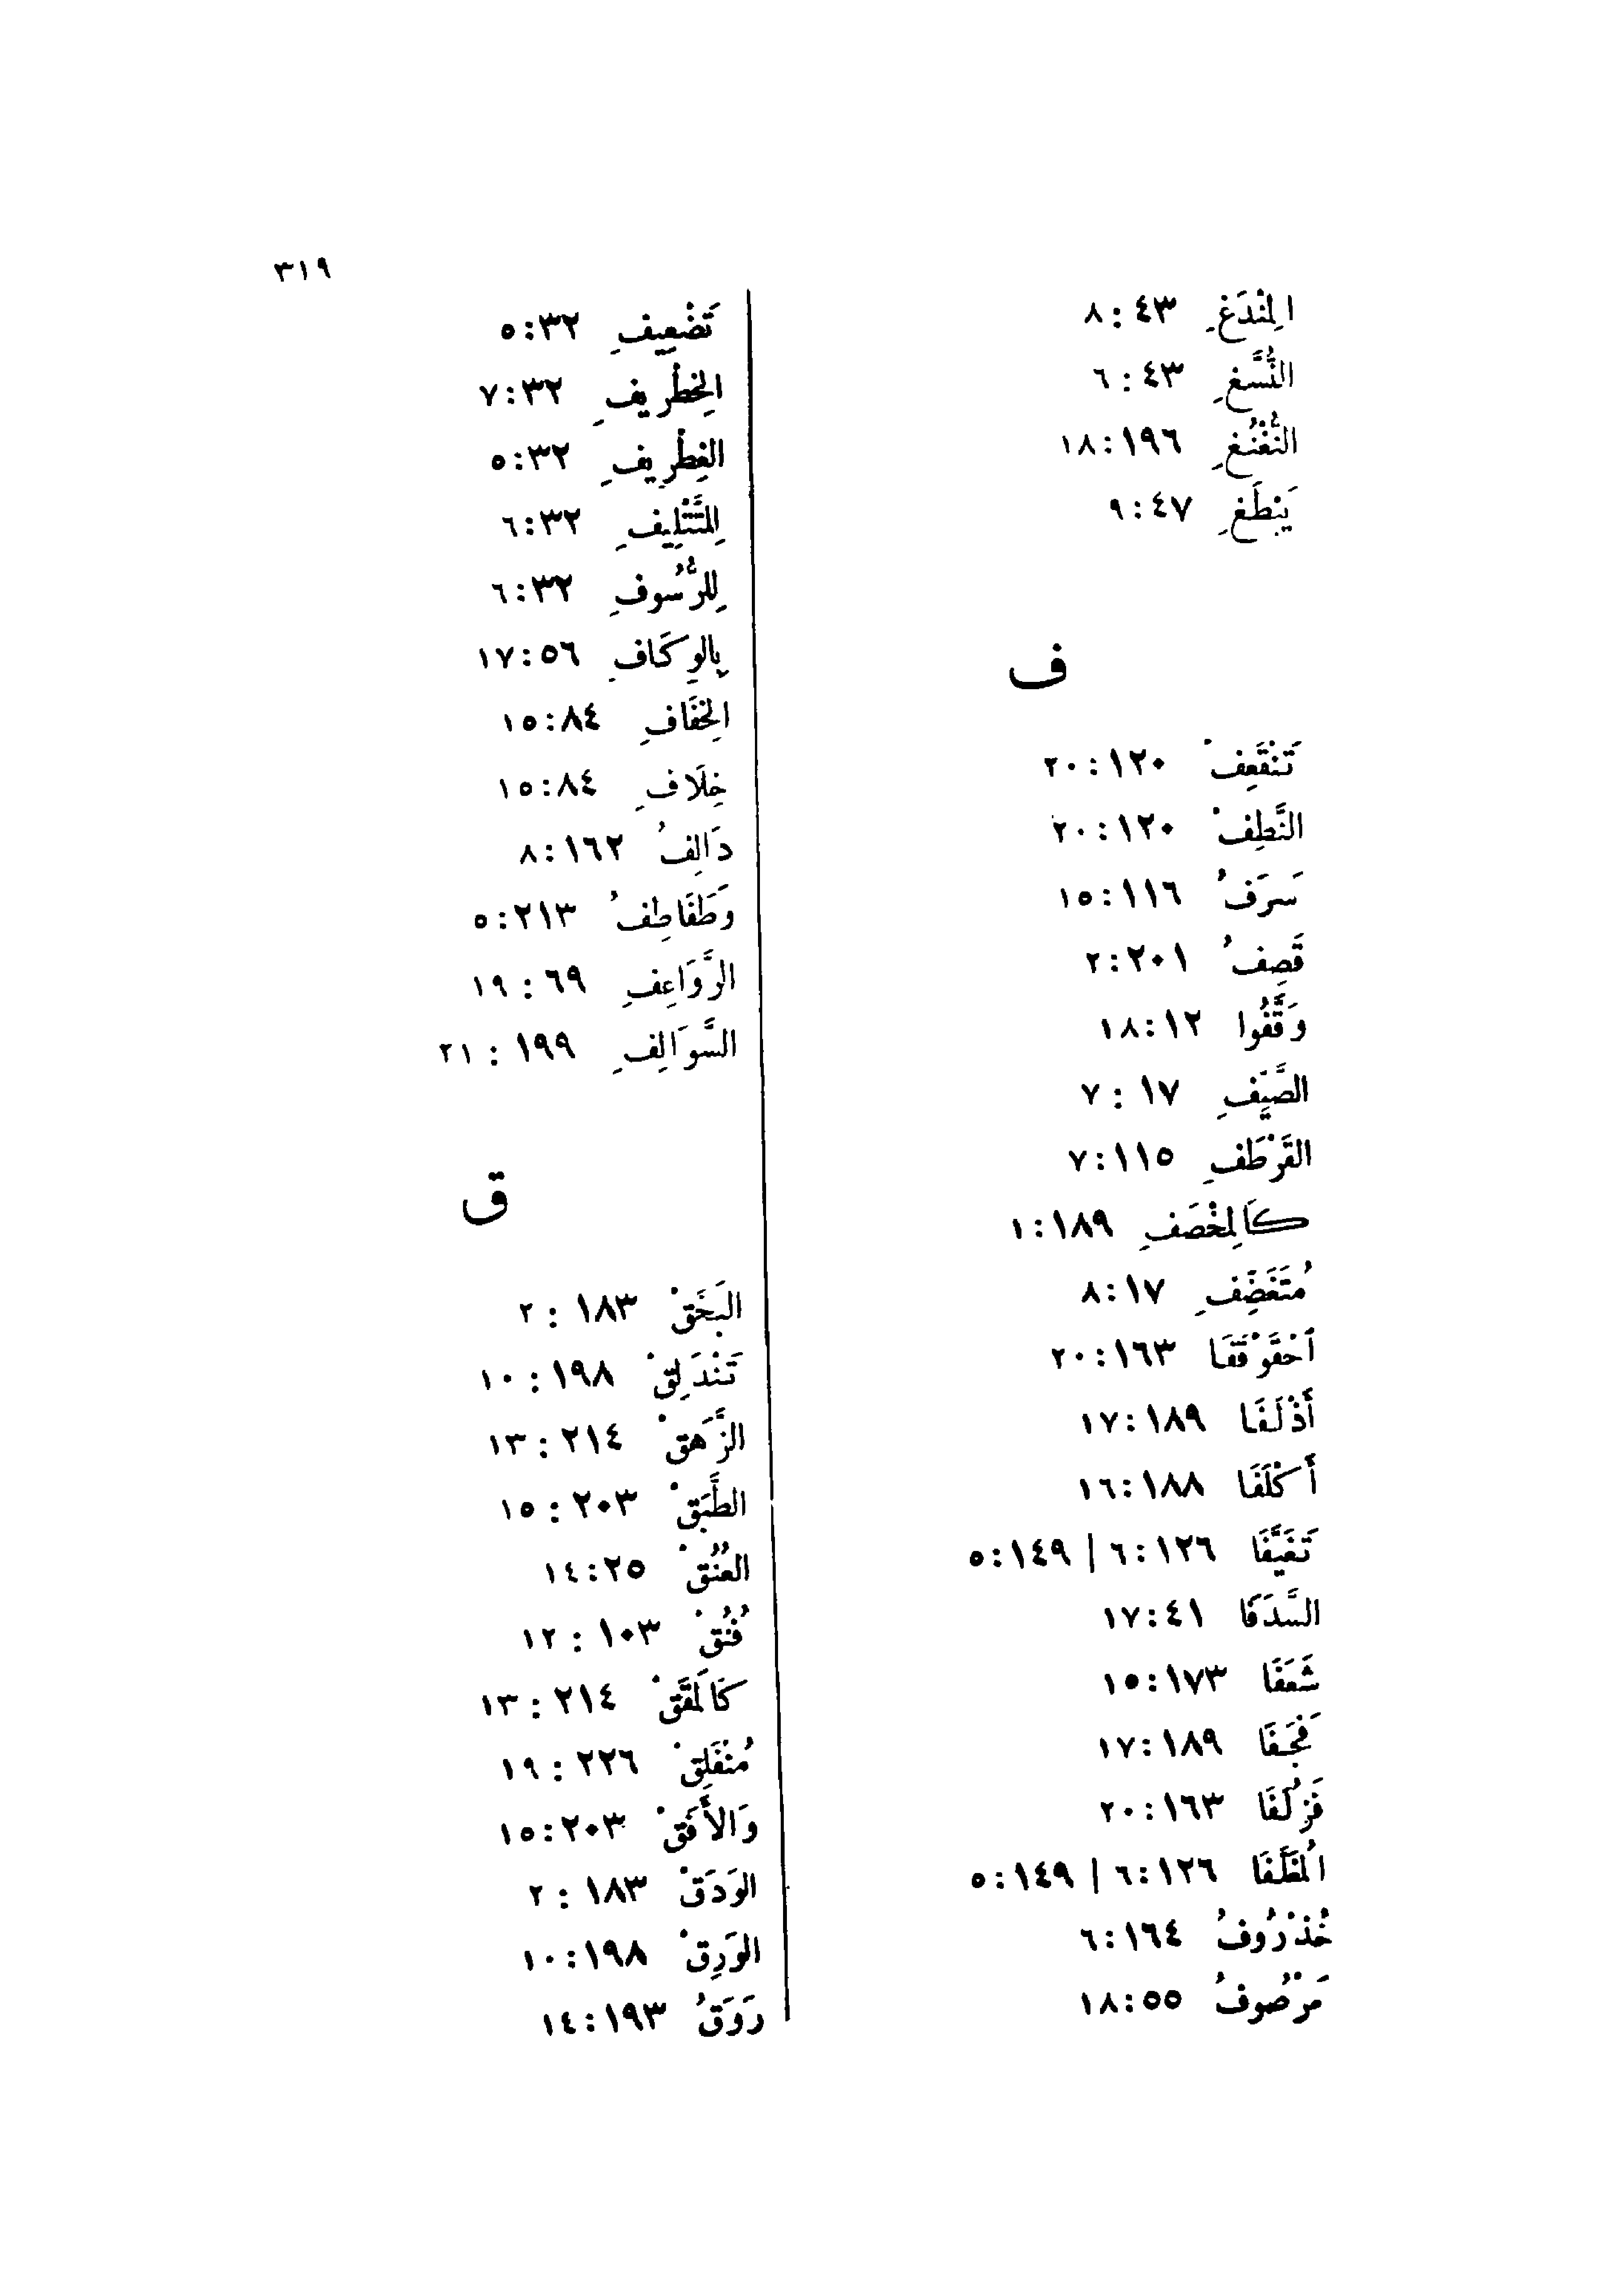 ٣١٩
المِنْدَغِ ٤٣ : ٨
النُّسَّغِ ٤٣ : ٦
النُّغْنُغِ ١٩٦ : ١٨
يَبْطَغِ ٤٧ : ٩
ف
تَنْقَعِفْ ١٢٠ : ٢٠
النَّطِفْ ١٢٠ : ٢٠
سَرَفُ ١١٦ : ١٥
قَصِفُ ٢٠١ : ٢
وَقَّفُوا ١٢ : ١٨
الصَّيِّفِ ١٧ : ٧
القَرْطَفِ ١١٥ : ٧
كَالمِخْصَفِ ١٨٩ : ١
مُتَغَضِّفِ ١٧ : ٨
آحْقَوْقَفَا ١٦٣ : ٢٠
أَذْلَفَا ١٨٩ : ١٧
أَكْلَفَا ١٨٨ : ١٦
تَغَيَّفَا ١٢٦ : ٦ | ١٤٩ : ٥
السَّدَفَا ٤١ : ١٧
شَعَفَا ١٧٣ : ١٥
فَجَفَا ١٨٩ : ١٧
فَزُلَفَا ١٦٣ : ٢٠
المُغَلَّفَا ١٢٦ : ٦ | ١٤٩ : ٥
خُذْرُوفُ ١٦٤ : ٦
مَرْصُوفُ ٥٥ : ١٨
تَضْعِيفِ ٣٢ : ٥
الخِطْرِيفِ ٣٢ : ٧
الغِطْرِيفِ ٣٢ : ٥
لِلمَّتْلِيفِ ٣٢ : ٦
لِلرُّسُوفِ ٣٢ : ٦
بِالوِكَافِ ٥٦ : ١٧
الخِفَافِ ٨٤ : ١٥
خِلَافِ ٨٤ : ١٥
دَالِفُ ١٦٢ : ٨
وَطَفَاطِفُ ٢١٣ : ٥
الرَّوَاعِفِ ٦٩ : ١٩
السَّوَالِفِ ١٩٩ : ٢١
ق
البَخَقْ ١٨٣ : ٢
تَنْدَلِقْ ١٩٨ : ١٠
الزَّهَقْ ٢١٤ : ١٣
الطَّبَقْ ٢٠٣ : ١٥
العُنُقْ ٢٥ : ١٤
فُنُقْ ١٠٣ : ١٢
كَالمَقَقْ ٢١٤ : ١٣
مُنْفَلِقْ ٢٢٦ : ١٩
وَالأَفَقْ ٢٠٣ : ١٥
الوَدَقْ ١٨٣ : ٢
الوَرِقْ ١٩٨ : ١٠
رَوَقُ ١٩٣ : ١٤